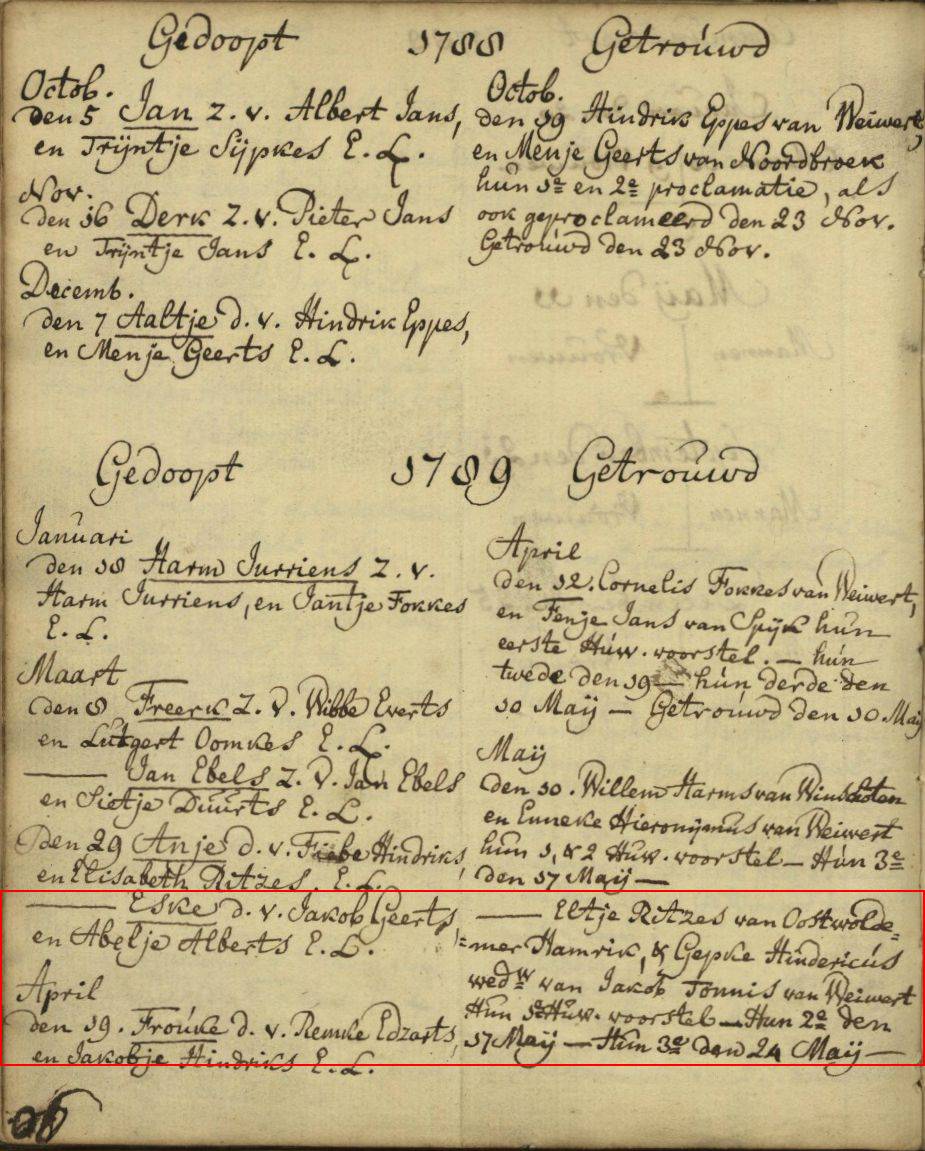 Gedoopt 1788 Getrouwd
Octob.
den 5 Jan z. v. Albert Jans,
en Trijntje Sijpkes E. L.
Nov.
den 16 Derk z. v. Pieter Jans
en Trijntje Jans E. L.
Decemb.
den 7 Aaltje d. v. Hindrik Eppes,
en Menje Geerts E. L.
Octob.
den 19 Hindrik Eppes van Weiwert,
en Menje Geerts van Noordbroek
hun 1e en 2e proclamatie, als
ook geproclameerd den 23 Nov.
Getrouwd den 23 Nov.
Gedoopt 1789 Getrouwd
Januari
den 18 Harm Jurriens z. v.
Harm Jurriens, en Jantje Fokkes
E. L.
Maart
den 8 Freerk z. v. Wibbe Everts
en Lutgert Oomkes E. L.
—— Jan Ebels z. v. Jan Ebels
en Sietje Duurts E. L.
Den 29 Anje d. v. Hindriks,
en Elisabeth Ritzes. E. L.
—— Eske d. v. Jakob Geerts,
en Abelje Alberts E. L.
April
den 19. Frouke d. v. Remke Edzarts,
en Jakobje Hindriks E. L.
April
den 12. Cornelis Fokkes van Weiwert,
en Fenje Jans van Spijk hun
eerste Huw. voorstel. — hun
twede den 19 — hun derde den
10 Maij — Getrouwd den 10. Maij
Maij
den 10. Willem Harms van Winschoten
en Enneke Hieronijmus van Weiwert
hun 1, & 2 Huw. voorstel — Hun 3e
den 17 Maij —
—— Eltje Ritzes van Oostwolde=
=mer Hamrik, & Gepke Hindericus
wedw van Jakob Tonnis van Weiwert
Hun 1e Huw. voorstel — Hun 2e den
17 Maij — Hun 3e den 24 Maij —